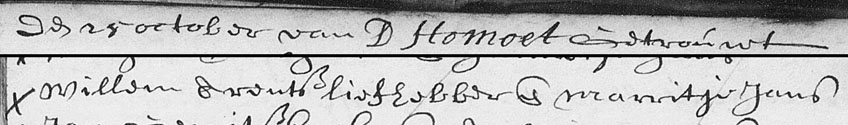 Den 25 october van D Homoet Getrouwt
x Willem Arents liefhebber & Marritje Jans